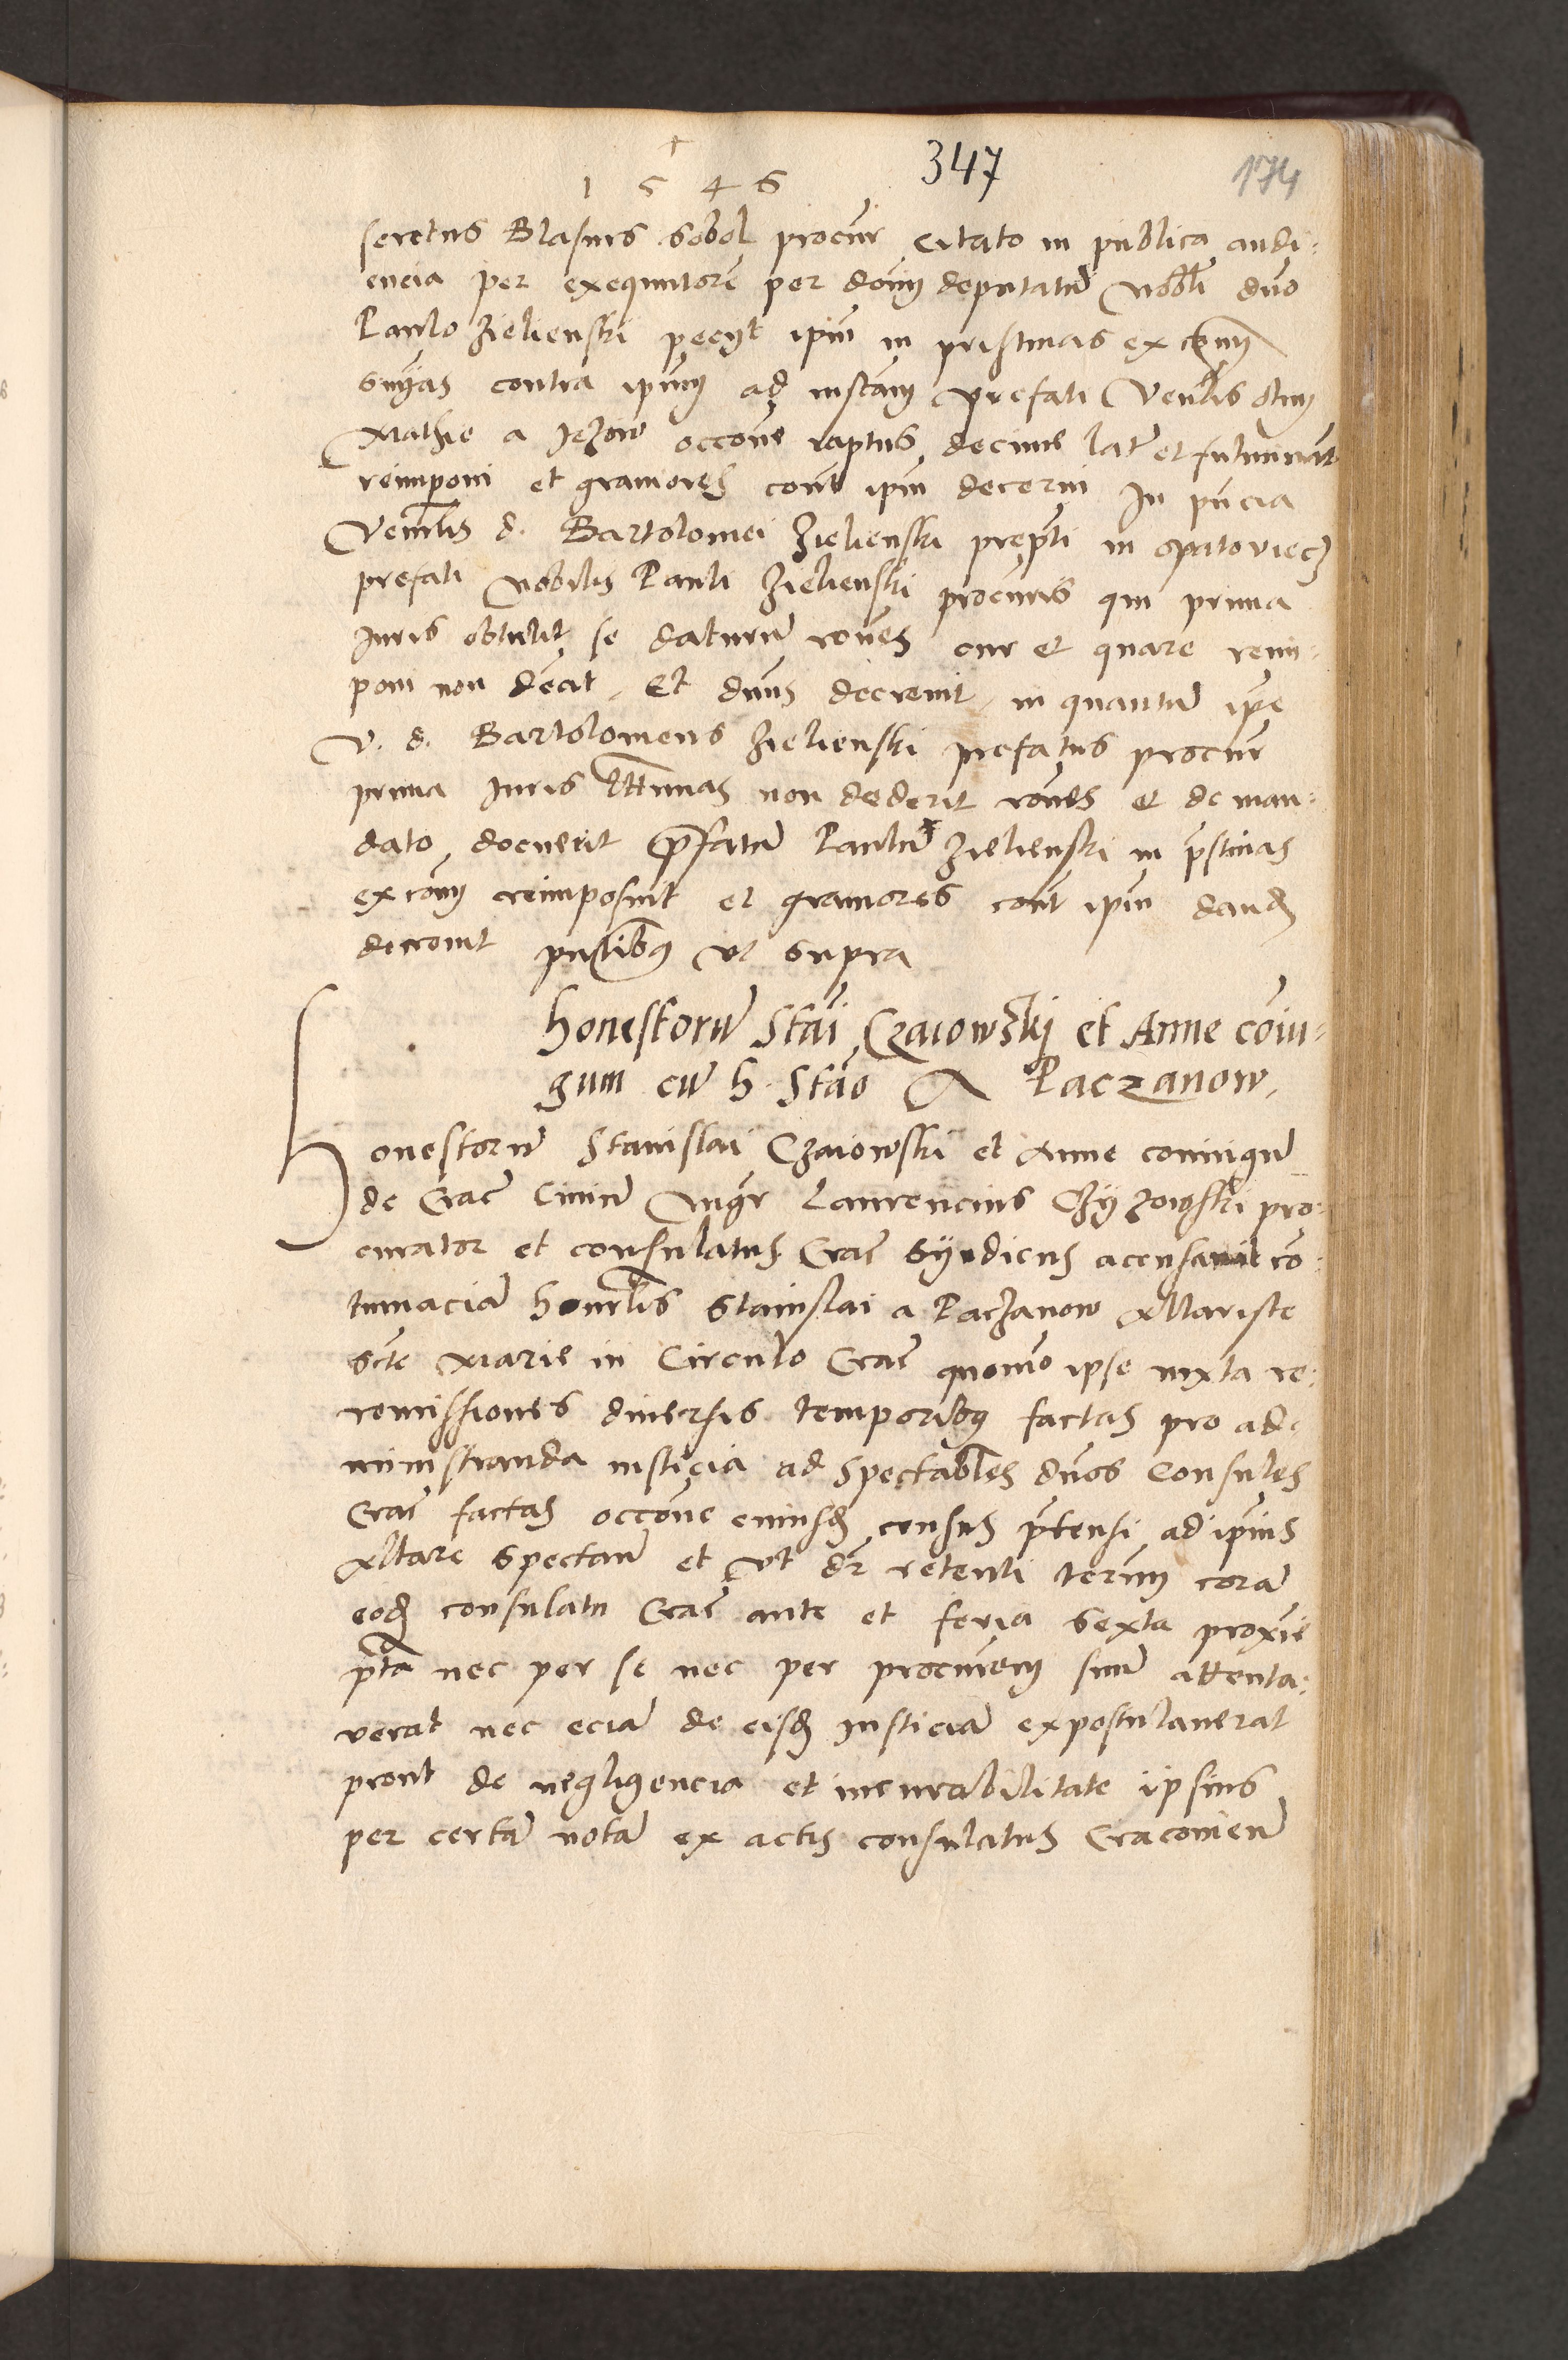 +
1 5 4 6
347
174
scretus Blasius Sobol procur citato in publica audi:
encia per exequutore per dom deputatu Nobli dno
Paulo Zielienski pecyt ipm in pristinas excom
snyas contra ipum ad instam prefati Venlis olim
Mathie a Jezow occone raptus decime lat et fulminat
reimponi et graviores cont ipm decerni In pncia
Venlis d. Bartolomei Zielienski prepti in Opatoviecz
prefati Nobilis Pauli Zielienski procuris qui prima
Juris obtulit se daturu rones cur et quare reim:
poni non debeat. Et dnus decrevit in quantu ipe
V. d. Bartolomeus Zielienski prefatus procur
prima Juris lttimas non dederit rones et de man:
dato docuerit prefatu Paulu Zielienski in pstinas
excom reimposuit et graviores cont ipm dand
decrevit pntibus ut supra
honestoru Stai Czaiowskj et Anne coiu:
gum cu h. Stao A Paczanow.
Honestoru Stanislai Czaiowski et Anne coniugu
de Crac Civiu Mgr Laurencius Czyzowski pro:
curator et consulatus Crac Syndicus accusavit co:
tumacia honrlis Stanislai a Paczanow Altariste
Scte Marie in Circulo Crac quomo ipse iuxta re:
remissiones diversis temporibus factas pro ad:
ministranda iusticia ad Spectabiles dnos Consules
Crac factas occone cuiusd census ptensi ad ipius
Altare spectan et ut dr retenti termi cora
eod consulatu Crac ante et feria sexta proxie
pta nec per se nec per procurem suu attenta:
verat nec ecia de eisd iusticia expostulaverat
prout de negligencia et incurabilitate ipsius
per certa nota ex actis consulatus Cracovien